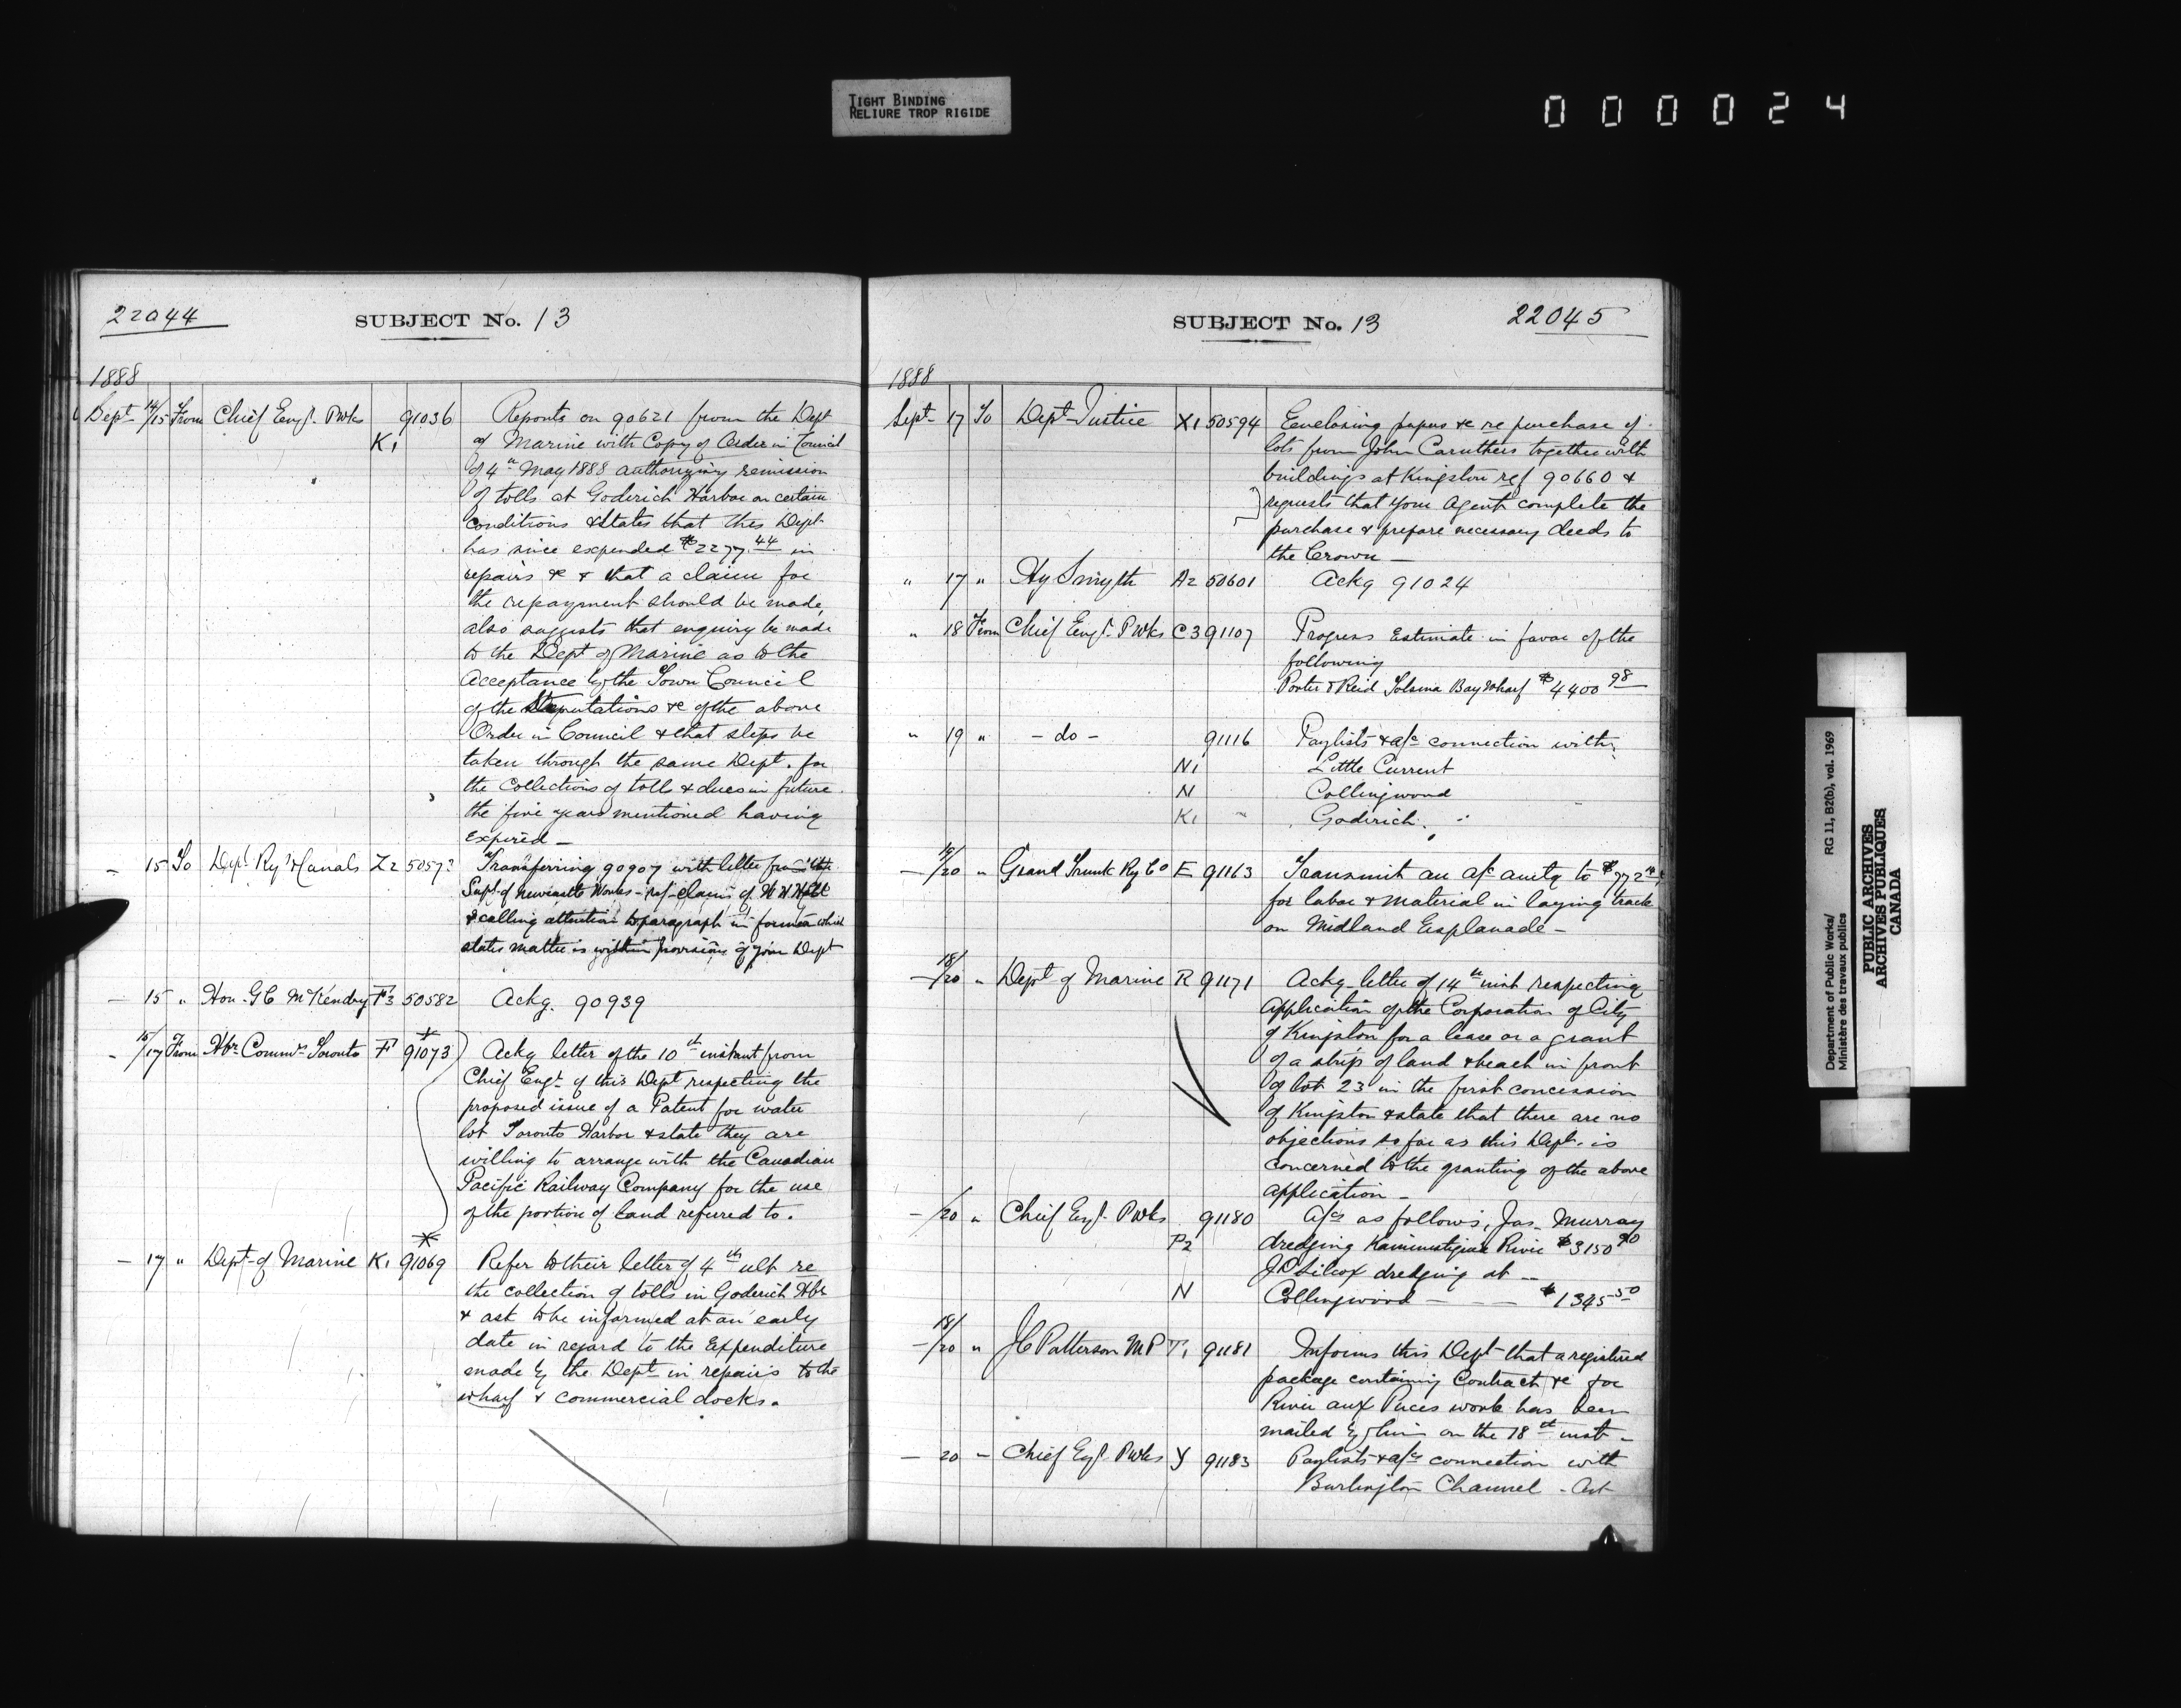 TIGHT BINDING
RELIURE TROP RIGIDE
000024
22044
SUBJECT No. 13
1888
Sept 14/15 From Chief Engr. PWks 91036 Reports on 90621 from the Dept
K1 of Marine with Copy of Order in Council
of 4th May 1888 authorizing remission
of tolls at Goderich Harbor on certain
conditions & states that this Dept
has since expended $2277.44 in
repairs &c & that a claim for
the repayment should be made,
also suggests that enquiry be made
to the Dept of Marine as to the
Acceptance by the Town Council
of the Stipulations &c of the above
Order in Council & that steps be
taken through the same Dept. for
the Collections of tolls & dues in future
the five years mentioned having
expired —
— 15 To Dept Rys & Canals Z2 50573 Transferring 90907 with letter from the
Supt of Newcastle Works - ref - claim of W H Holt
& calling attention to paragraph in former which
states matter is within provision of your Dept
— 15 " Hon. G C McKendry F3 50582 Ackg. 90939
— 15/17 From Hbr Commrs Toronto F 91073 Ackg letter of the 10th instant from
Chief Engr. of this Dept respecting the
proposed issue of a Patent for water
lot Toronto Harbor & state they are
willing to arrange with the Canadian
Pacific Railway Company for the use
of the portion of land referred to.
— 17 " Dept of Marine K1 91069 Refer to their letter of 4th ult re
the collection of tolls in Goderich Hbr
& ask to be informed at an early
date in regard to the Expenditure
made by the Dept in repairs to the
wharf & commercial docks.
SUBJECT No. 13
22045
1888
Sept 17 To Dept Justice X1 50594 Enclosing papers &c re purchase of
lots from John Caruthers together with
buildings at Kingston ref 90660 &
requests that your Agent complete the
purchase & prepare necessary deeds to
the Crown —
" 17 " Hy Smyth A2 50601 Ackg 91024
" 18 From Chief Engr. PWks C3 91107 Progress Estimate in favor of the
following
Porter & Reid Bay Wharf $4400 98
" 19 " - do - 91116 Paylists & a/cs connection with
" N1 Little Current
N Collingwood
K1 Goderich
— 19/20 " Grand Trunk Ry Co E 91163 Transmit an a/c amtg to
for labor & material in laying track
on Midland Esplanade —
— 18/20 " Dept of Marine R 91171 Ackg letter of 14th inst respecting
application of the Corporation of City
of Kingston for a lease or a grant
of a strip of land & beach in front
of lot 23 in the first concession
of Kingston & state that there are no
objections so far as this Dept. is
concerned to the granting of the above
application —
— /20 " Chief Engr. PWks 91180 A/cs as follows, Jas. Murray
P2 dredging Kaministiquia River $3150 90
J D Silcox dredging at —
N Collingwood — — — $1345 50
— 18/20 " J C Patterson M P T1 91181 Informs this Dept that a registered
package containing Contract &c for
River aux Puces work has been
mailed by him on the 18th inst —
— 20 " Chief Engr PWks Y 91183 Paylists & a/cs connection with
Burlington Channel
Department of Public Works/
Ministère des travaux publics
RG 11, B2(b), vol. 1969
PUBLIC ARCHIVES
ARCHIVES PUBLIQUES
CANADA